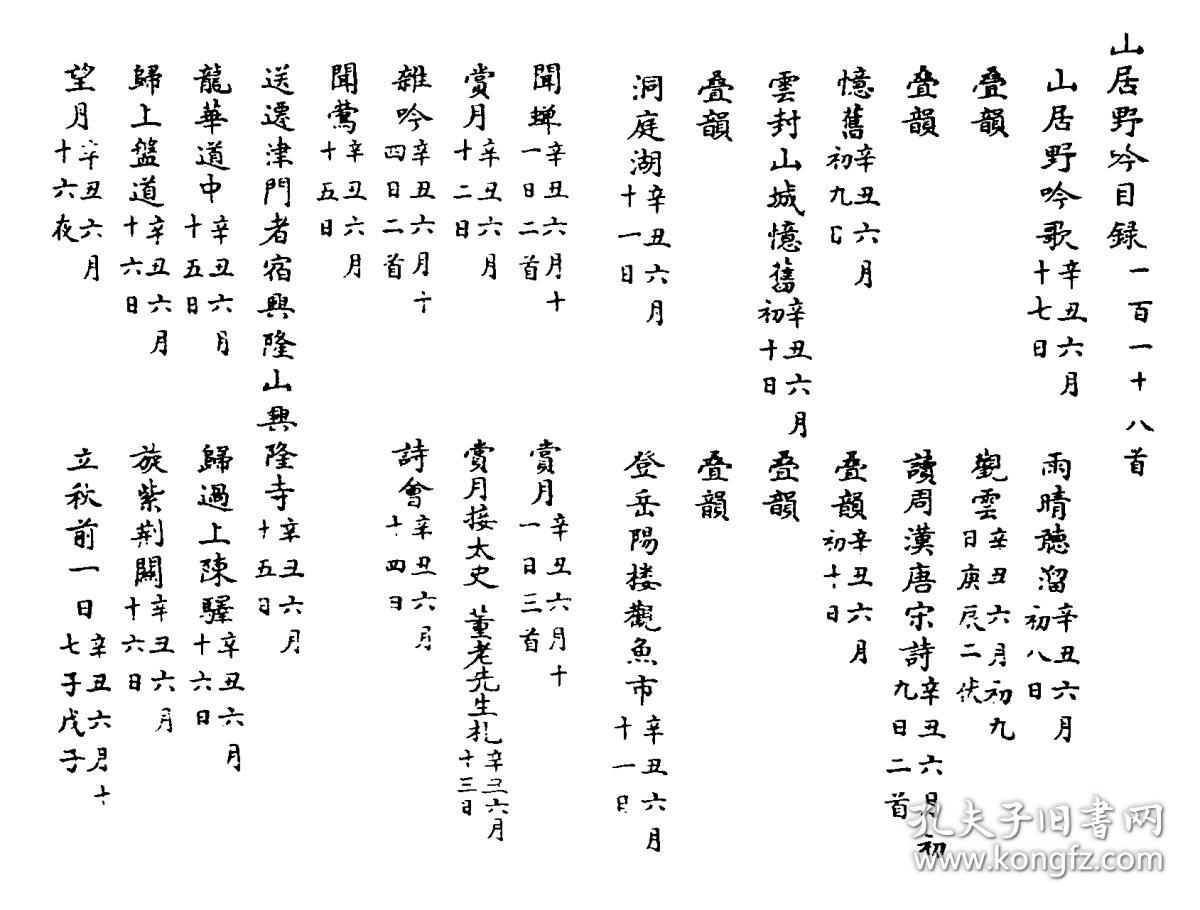 山居野吟目録 一百一十八首
山居野吟歌 辛丑六月十七日
雨晴聽溜 辛丑六月初八日
叠韻
觀雲 辛丑六月初九日庚辰二伏
叠韻
讀周漢唐宋詩 辛丑六月初九日二首
憶舊 辛丑六月初九日
叠韻 辛丑六月初十日
雲封山城憶舊 辛丑六月初十日
叠韻
叠韻
叠韻
洞庭湖 辛丑六月十一日
登岳陽楼觀魚市 辛丑六月十一日
聞蝉 辛丑六月十一日二首
賞月 辛丑六月十一日三首
賞月 辛丑六月十二日
賞月接太史董老先生札 辛丑六月十三日
雜吟 辛丑六月十四日二首
詩會 辛丑六月十四日
聞鶯 辛丑六月十五日
送遷津門者宿興隆山興隆寺 辛丑六月十五日
龍華道中 辛丑六月十五日
歸過上陳驛 辛丑六月十六日
歸上盤道 辛丑六月十六日
旋紫荆關 辛丑六月十六日
望月 辛丑六月十六夜
立秋前一日 辛丑六月十七子戊子
孔夫子旧书网
www.kongfz.com